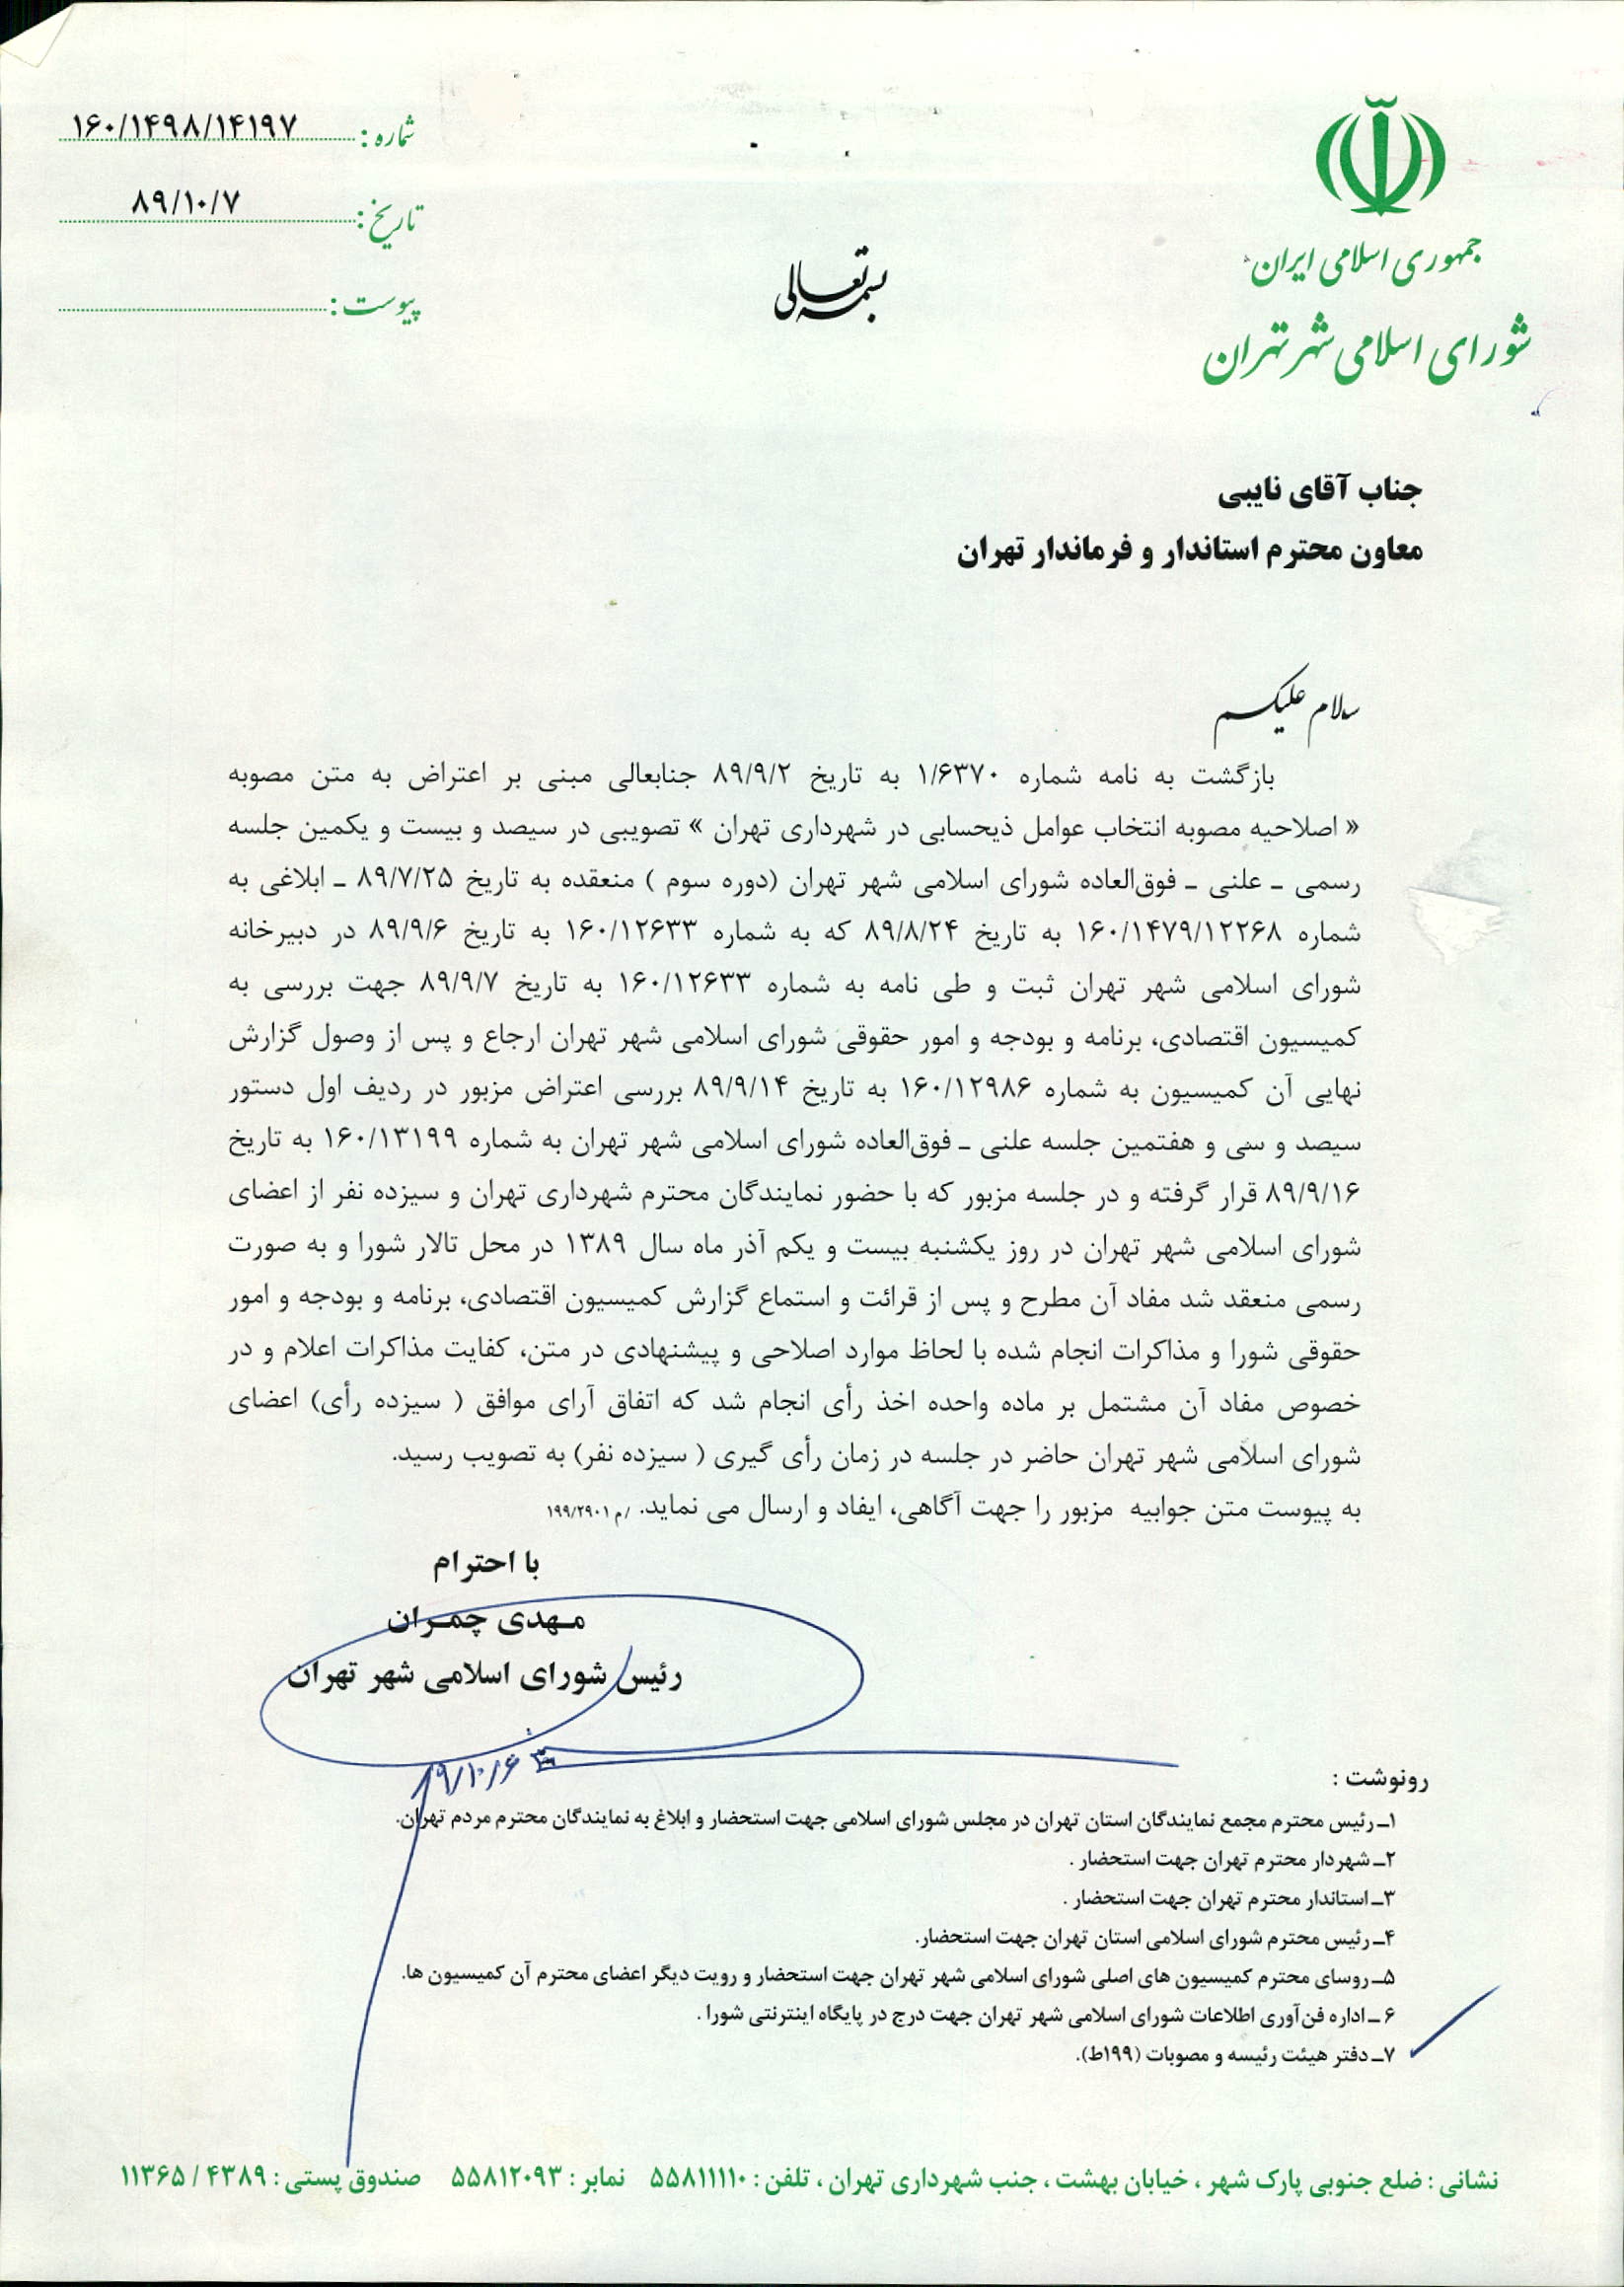 جمهوری اسلامی ایران
شورای اسلامی شهر تهران
شماره : ۱۶۰/۱۴۹۸/۱۴۱۹۷
تاریخ : ۸۹/۱۰/۷
پیوست :
بسمه تعالی
جناب آقای نایبی
معاون محترم استاندار و فرماندار تهران
سلام علیکم
بازگشت به نامه شماره ۱/۶۳۷۰ به تاریخ ۸۹/۹/۲ جنابعالی مبنی بر اعتراض به متن مصوبه
« اصلاحیه مصوبه انتخاب عوامل ذیحسابی در شهرداری تهران » تصویبی در سیصد و بیست و یکمین جلسه
رسمی ـ علنی ـ فوق‌العاده شورای اسلامی شهر تهران (دوره سوم ) منعقده به تاریخ ۸۹/۷/۲۵ ـ ابلاغی به
شماره ۱۶۰/۱۴۷۹/۱۲۲۶۸ به تاریخ ۸۹/۸/۲۴ که به شماره ۱۶۰/۱۲۶۳۳ به تاریخ ۸۹/۹/۶ در دبیرخانه
شورای اسلامی شهر تهران ثبت و طی نامه به شماره ۱۶۰/۱۲۶۳۳ به تاریخ ۸۹/۹/۷ جهت بررسی به
کمیسیون اقتصادی، برنامه و بودجه و امور حقوقی شورای اسلامی شهر تهران ارجاع و پس از وصول گزارش
نهایی آن کمیسیون به شماره ۱۶۰/۱۲۹۸۶ به تاریخ ۸۹/۹/۱۴ بررسی اعتراض مزبور در ردیف اول دستور
سیصد و سی و هفتمین جلسه علنی ـ فوق‌العاده شورای اسلامی شهر تهران به شماره ۱۶۰/۱۳۱۹۹ به تاریخ
۸۹/۹/۱۶ قرار گرفته و در جلسه مزبور که با حضور نمایندگان محترم شهرداری تهران و سیزده نفر از اعضای
شورای اسلامی شهر تهران در روز یکشنبه بیست و یکم آذر ماه سال ۱۳۸۹ در محل تالار شورا و به صورت
رسمی منعقد شد مفاد آن مطرح و پس از قرائت و استماع گزارش کمیسیون اقتصادی، برنامه و بودجه و امور
حقوقی شورا و مذاکرات انجام شده با لحاظ موارد اصلاحی و پیشنهادی در متن، کفایت مذاکرات اعلام و در
خصوص مفاد آن مشتمل بر ماده واحده اخذ رأی انجام شد که اتفاق آرای موافق ( سیزده رأی) اعضای
شورای اسلامی شهر تهران حاضر در جلسه در زمان رأی گیری ( سیزده نفر) به تصویب رسید.
به پیوست متن جوابیه مزبور را جهت آگاهی، ایفاد و ارسال می نماید. /م ۱۹۹/۲۹۰۱
با احترام
مهدی چمران
رئیس شورای اسلامی شهر تهران
۸۹/۱۰/۶
رونوشت :
۱ـ رئیس محترم مجمع نمایندگان استان تهران در مجلس شورای اسلامی جهت استحضار و ابلاغ به نمایندگان محترم مردم تهران.
۲ـ شهردار محترم تهران جهت استحضار .
۳ـ استاندار محترم تهران جهت استحضار .
۴ـ رئیس محترم شورای اسلامی استان تهران جهت استحضار.
۵ـ روسای محترم کمیسیون های اصلی شورای اسلامی شهر تهران جهت استحضار و رویت دیگر اعضای محترم آن کمیسیون ها.
۶ ـ اداره فن‌آوری اطلاعات شورای اسلامی شهر تهران جهت درج در پایگاه اینترنتی شورا .
۷ـ دفتر هیئت رئیسه و مصوبات (۱۹۹ط).
نشانی : ضلع جنوبی پارک شهر ، خیابان بهشت ، جنب شهرداری تهران ، تلفن : ۵۵۸۱۱۱۱۰ نمابر : ۵۵۸۱۲۰۹۳ صندوق پستی : ۴۳۸۹ / ۱۱۳۶۵